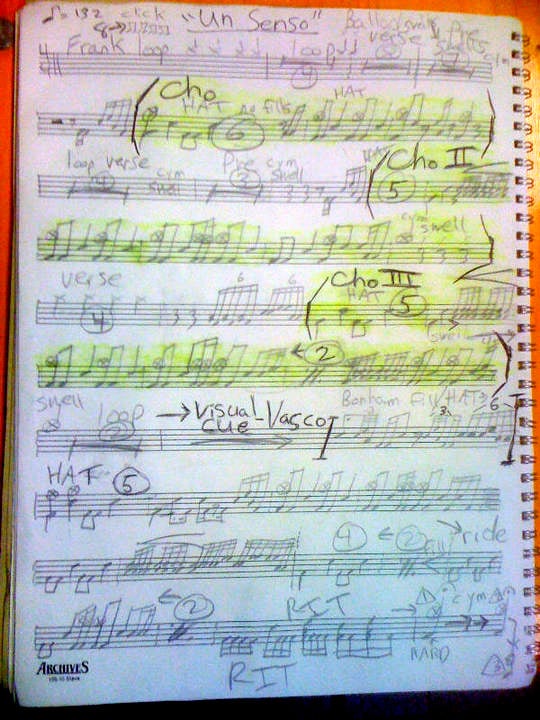 ♩= 132 click "Un Senso" Ballad verse Pre
8→
Frank loop loop
9
Cho
HAT no fills HAT
6
loop verse Pre cym HAT Cho II
swell swell
4 2 5
cym
swell
verse Cho III
6 6 HAT
4 5
swell
← 2
swell loop → Visual Cue - Vasco Bonham fill HAT
2 3 6
HAT 5
4 ← 2 ride
fill
← 2 RIT cym
HARD
RIT 3
ARCHIVES